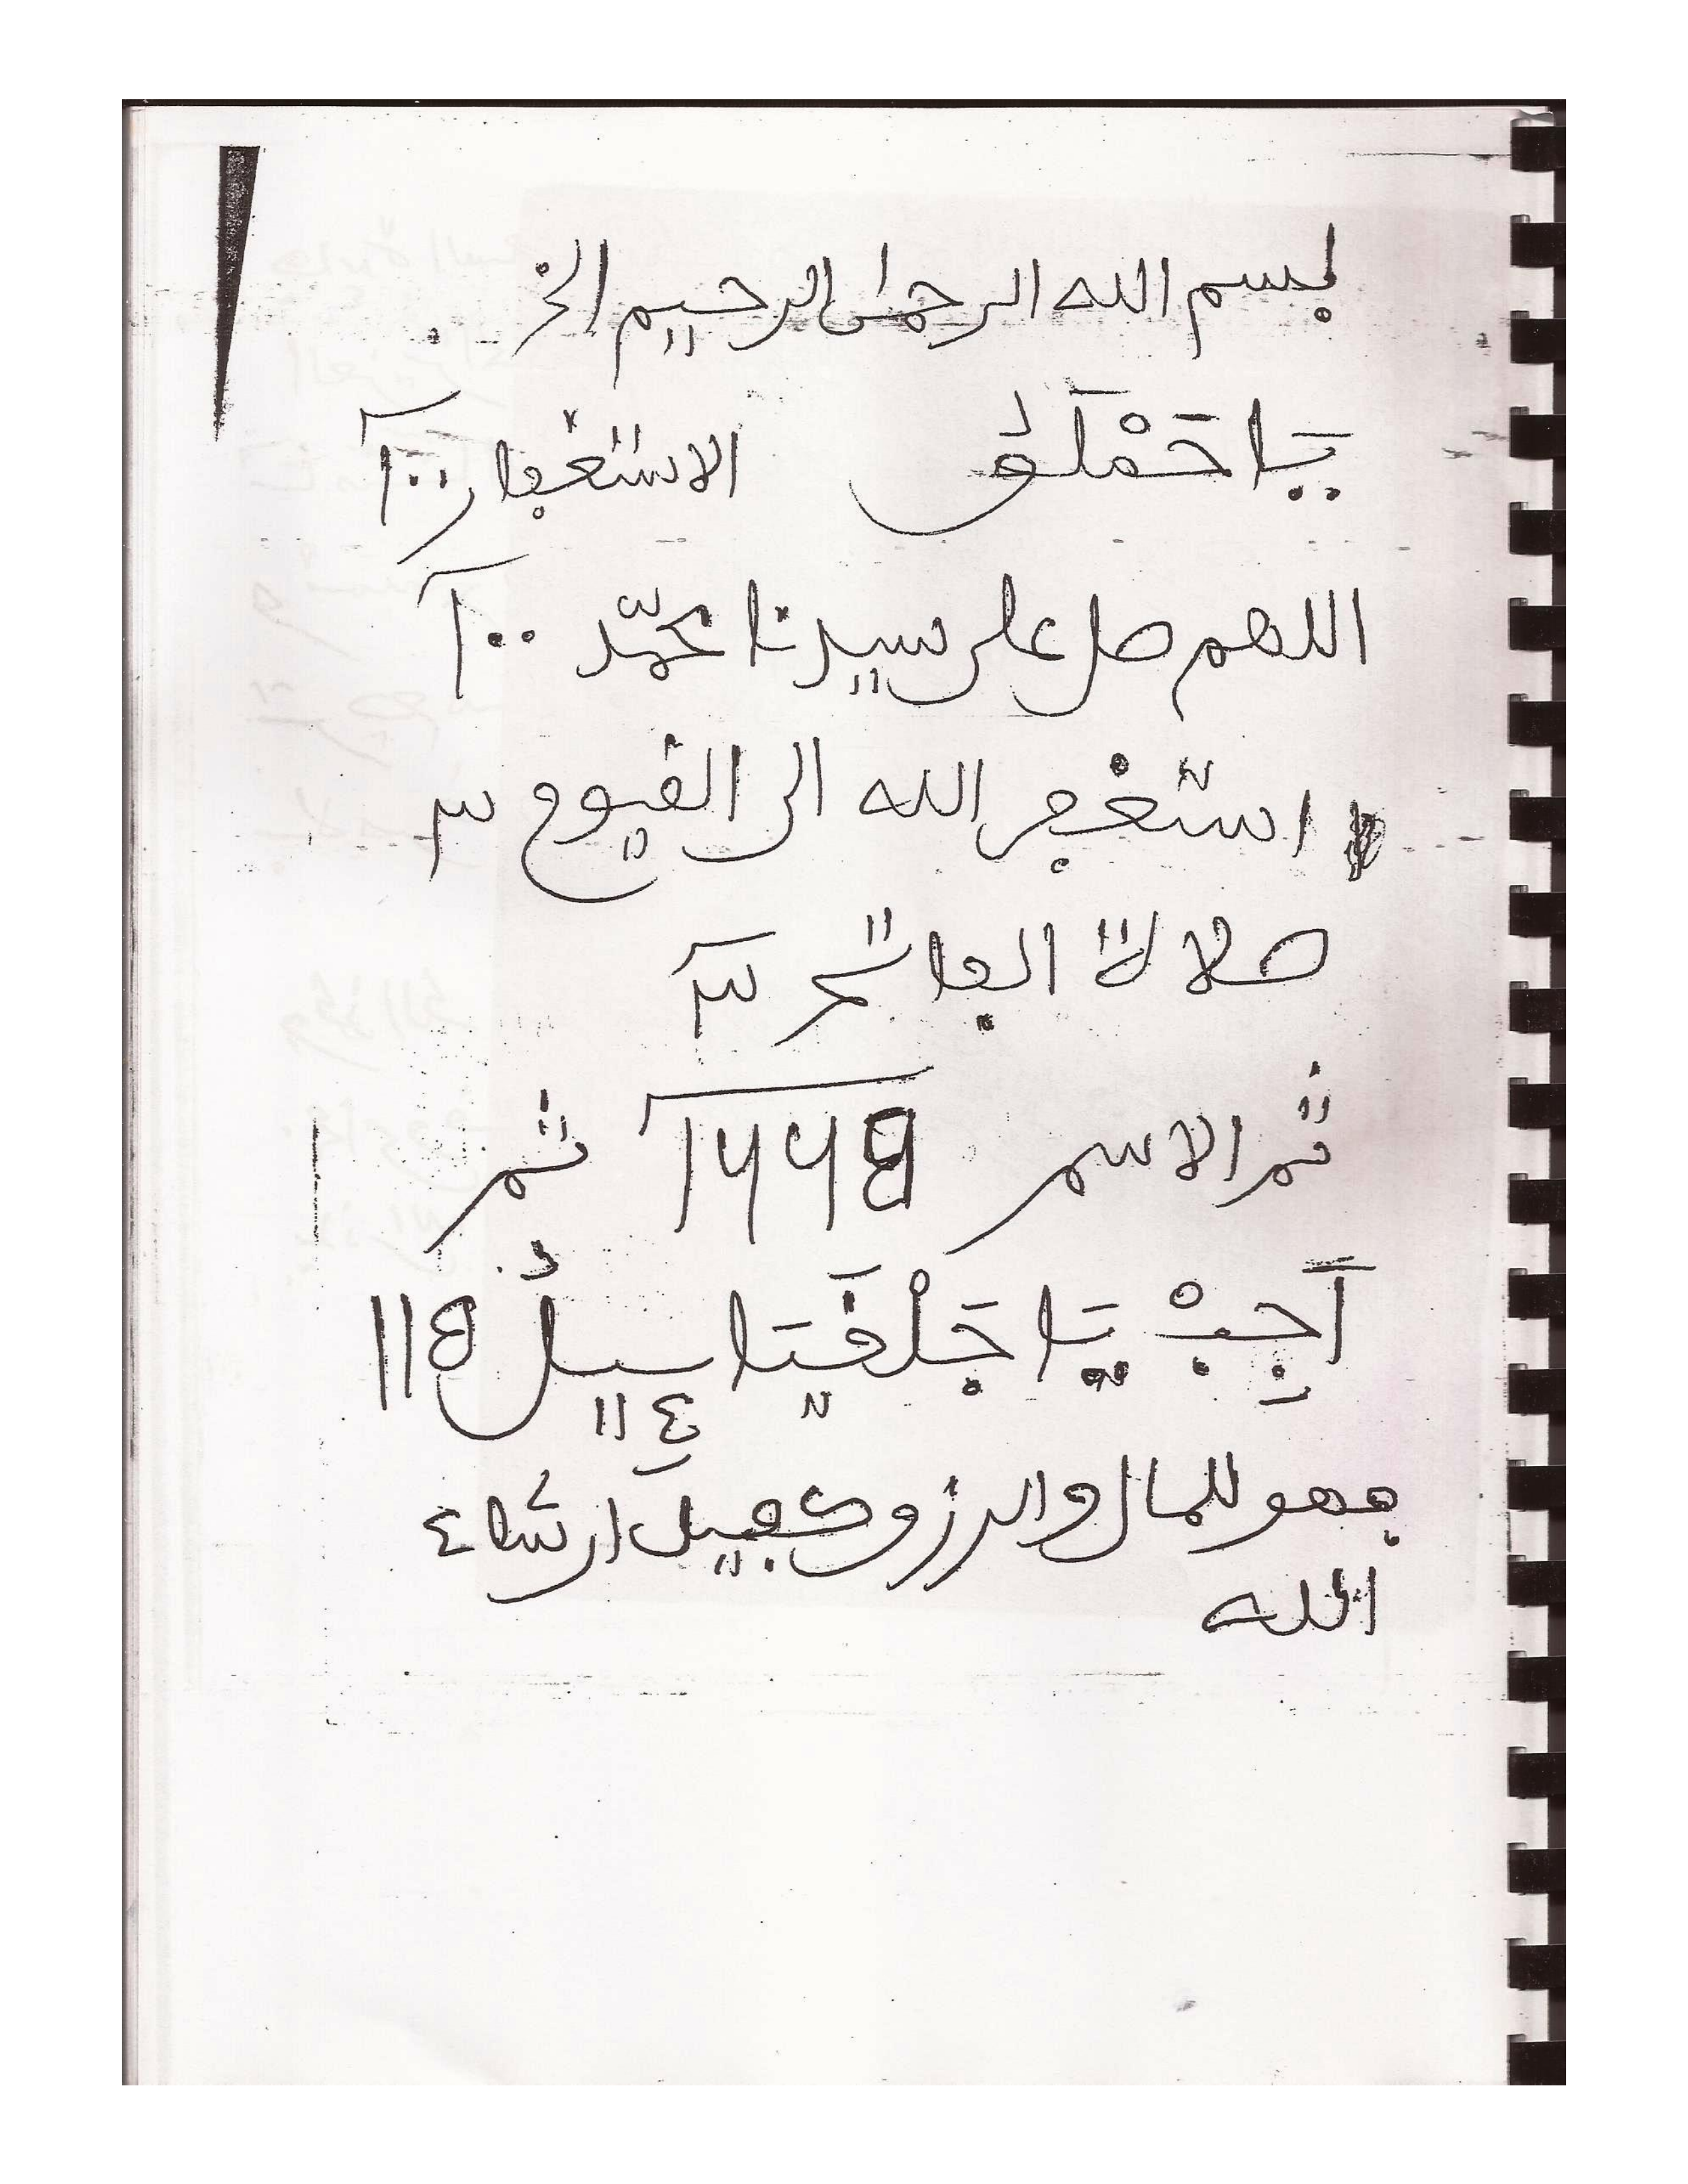 بسم الله الرحمن الرحيم الخ
يَا حَمْلَقُ الاستغفار ١٠٠
اللهم صل على سيدنا محمّد ١٠٠
استغفر الله الى القيوم ٣
صلاة الفاتح ٣
ثم الاسم ثم
أَجِبْ يَا جَلْفَيَاءِيلُ
فهو للمال والرزق كفيل ان شاء
الله